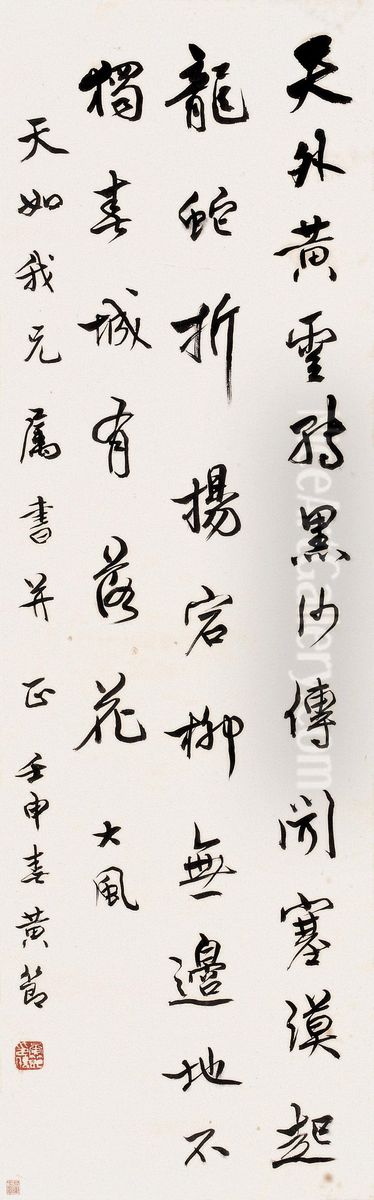 天外黄雲黑沙傳聞塞漠起
龍蛇折揚宕柳無邊地不
獨春城有落花 大風
天如我兄屬書并正 壬申春黄節